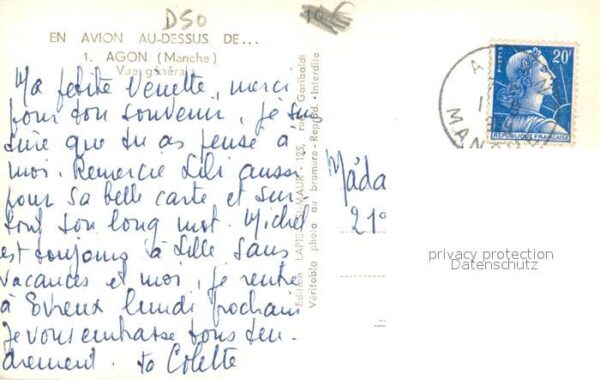 DSO
EN AVION AU-DESSUS DE...
1. AGON (Manche)
Vue générale
Ma petite Venette, merci
pour ton souvenir, je suis
sûre que tu as pensé à
moi. Remercie Lili aussi
pour sa belle carte et sur-
tout son long mot. Michel
est toujours à Lille sans
vacances et moi, je rentre
à Evreux lundi prochain
Je vous embrasse tous ten-
drement. ta Colette
Edition LAPIE, ST-MAUR - 125, rue Garibaldi
Véritable photo au bromure - Reprod. Interdite
Mada
21
A
MAN
POSTES
20F
REPUBLIQUE FRANCAISE
privacy protection
Datenschutz